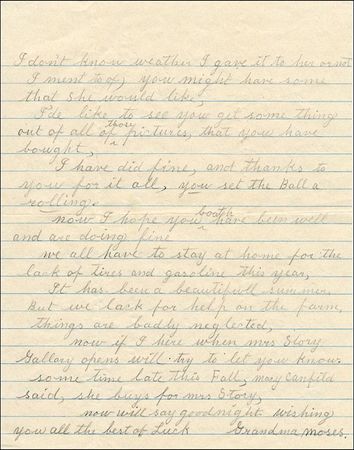 I don't know weather I gave it to her or not
I ment to, you might have some
that she would like,
I'de like to see you get some thing
out of all of those pictures, that you have
bought,
I have did fine, and thanks to
you for it all, you set the Ball a
rolling.
now I hope you boath have been well
and are doing fine
we all have to stay at home for the
lack of tires and gasoline this year,
It has been a beautifull summer
But we lack for help on the farm,
things are badly neglected,
now if I here when mrs Story
Gallary opens will try to let you know
some time late this Fall, mary Canfild
said, she buys for mrs Story,
now will say goodnight wishing
you all the best of Luck Grandma moses.